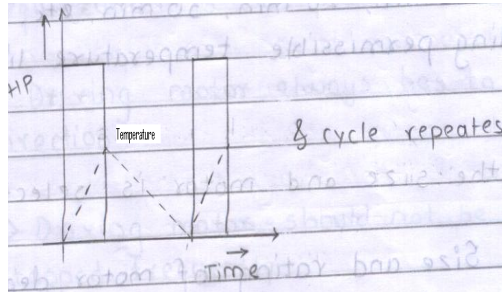 HP
Temperature
& cycle repeates
Time